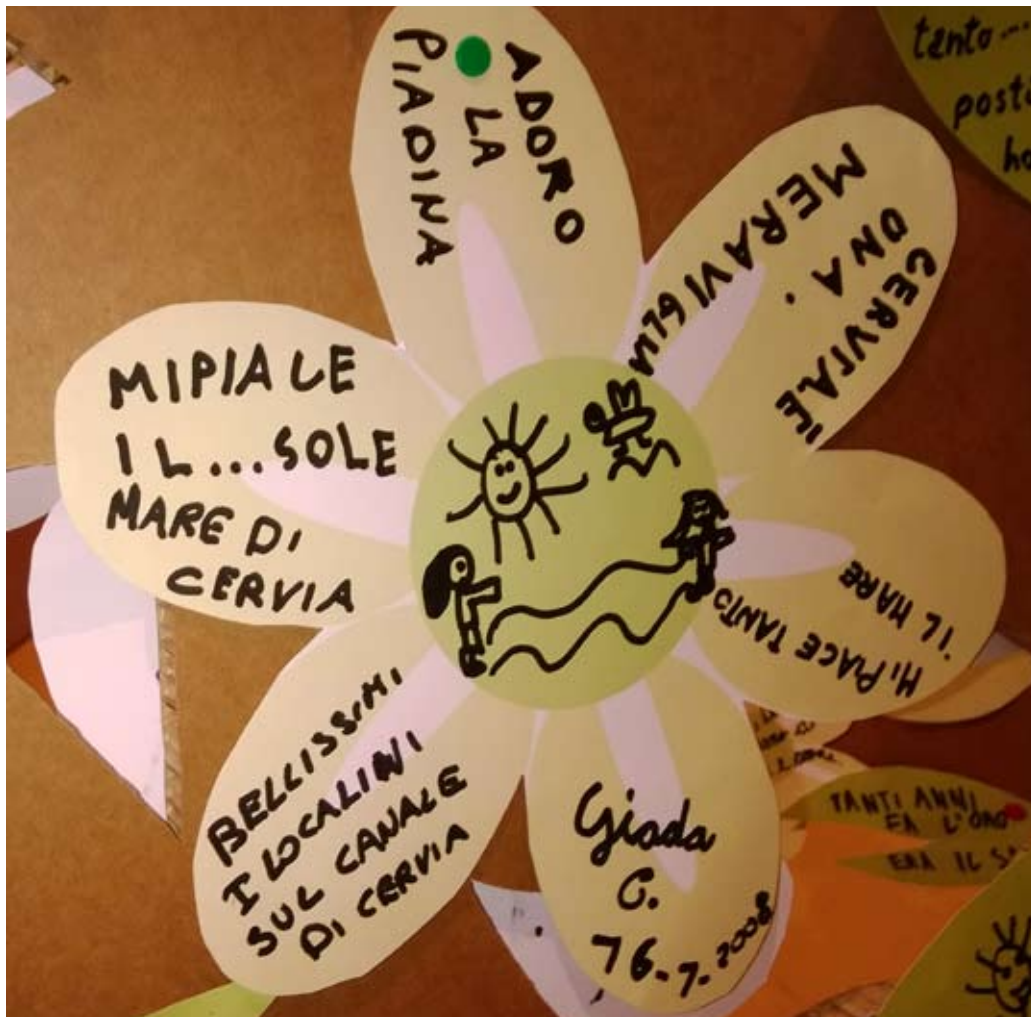 ADORO
LA
PIADINA
UNA.
MERAVIGLIA
MI PIACE TANTO
IL MARE
Giada
C.
16-7-2008
BELLISSIMI
I LOCALINI
SUL CANALE
DI CERVIA
MIPIACE
IL...SOLE
MARE DI
CERVIA
tanto...
TANTI ANNI
FA L'ORO
ERA IL